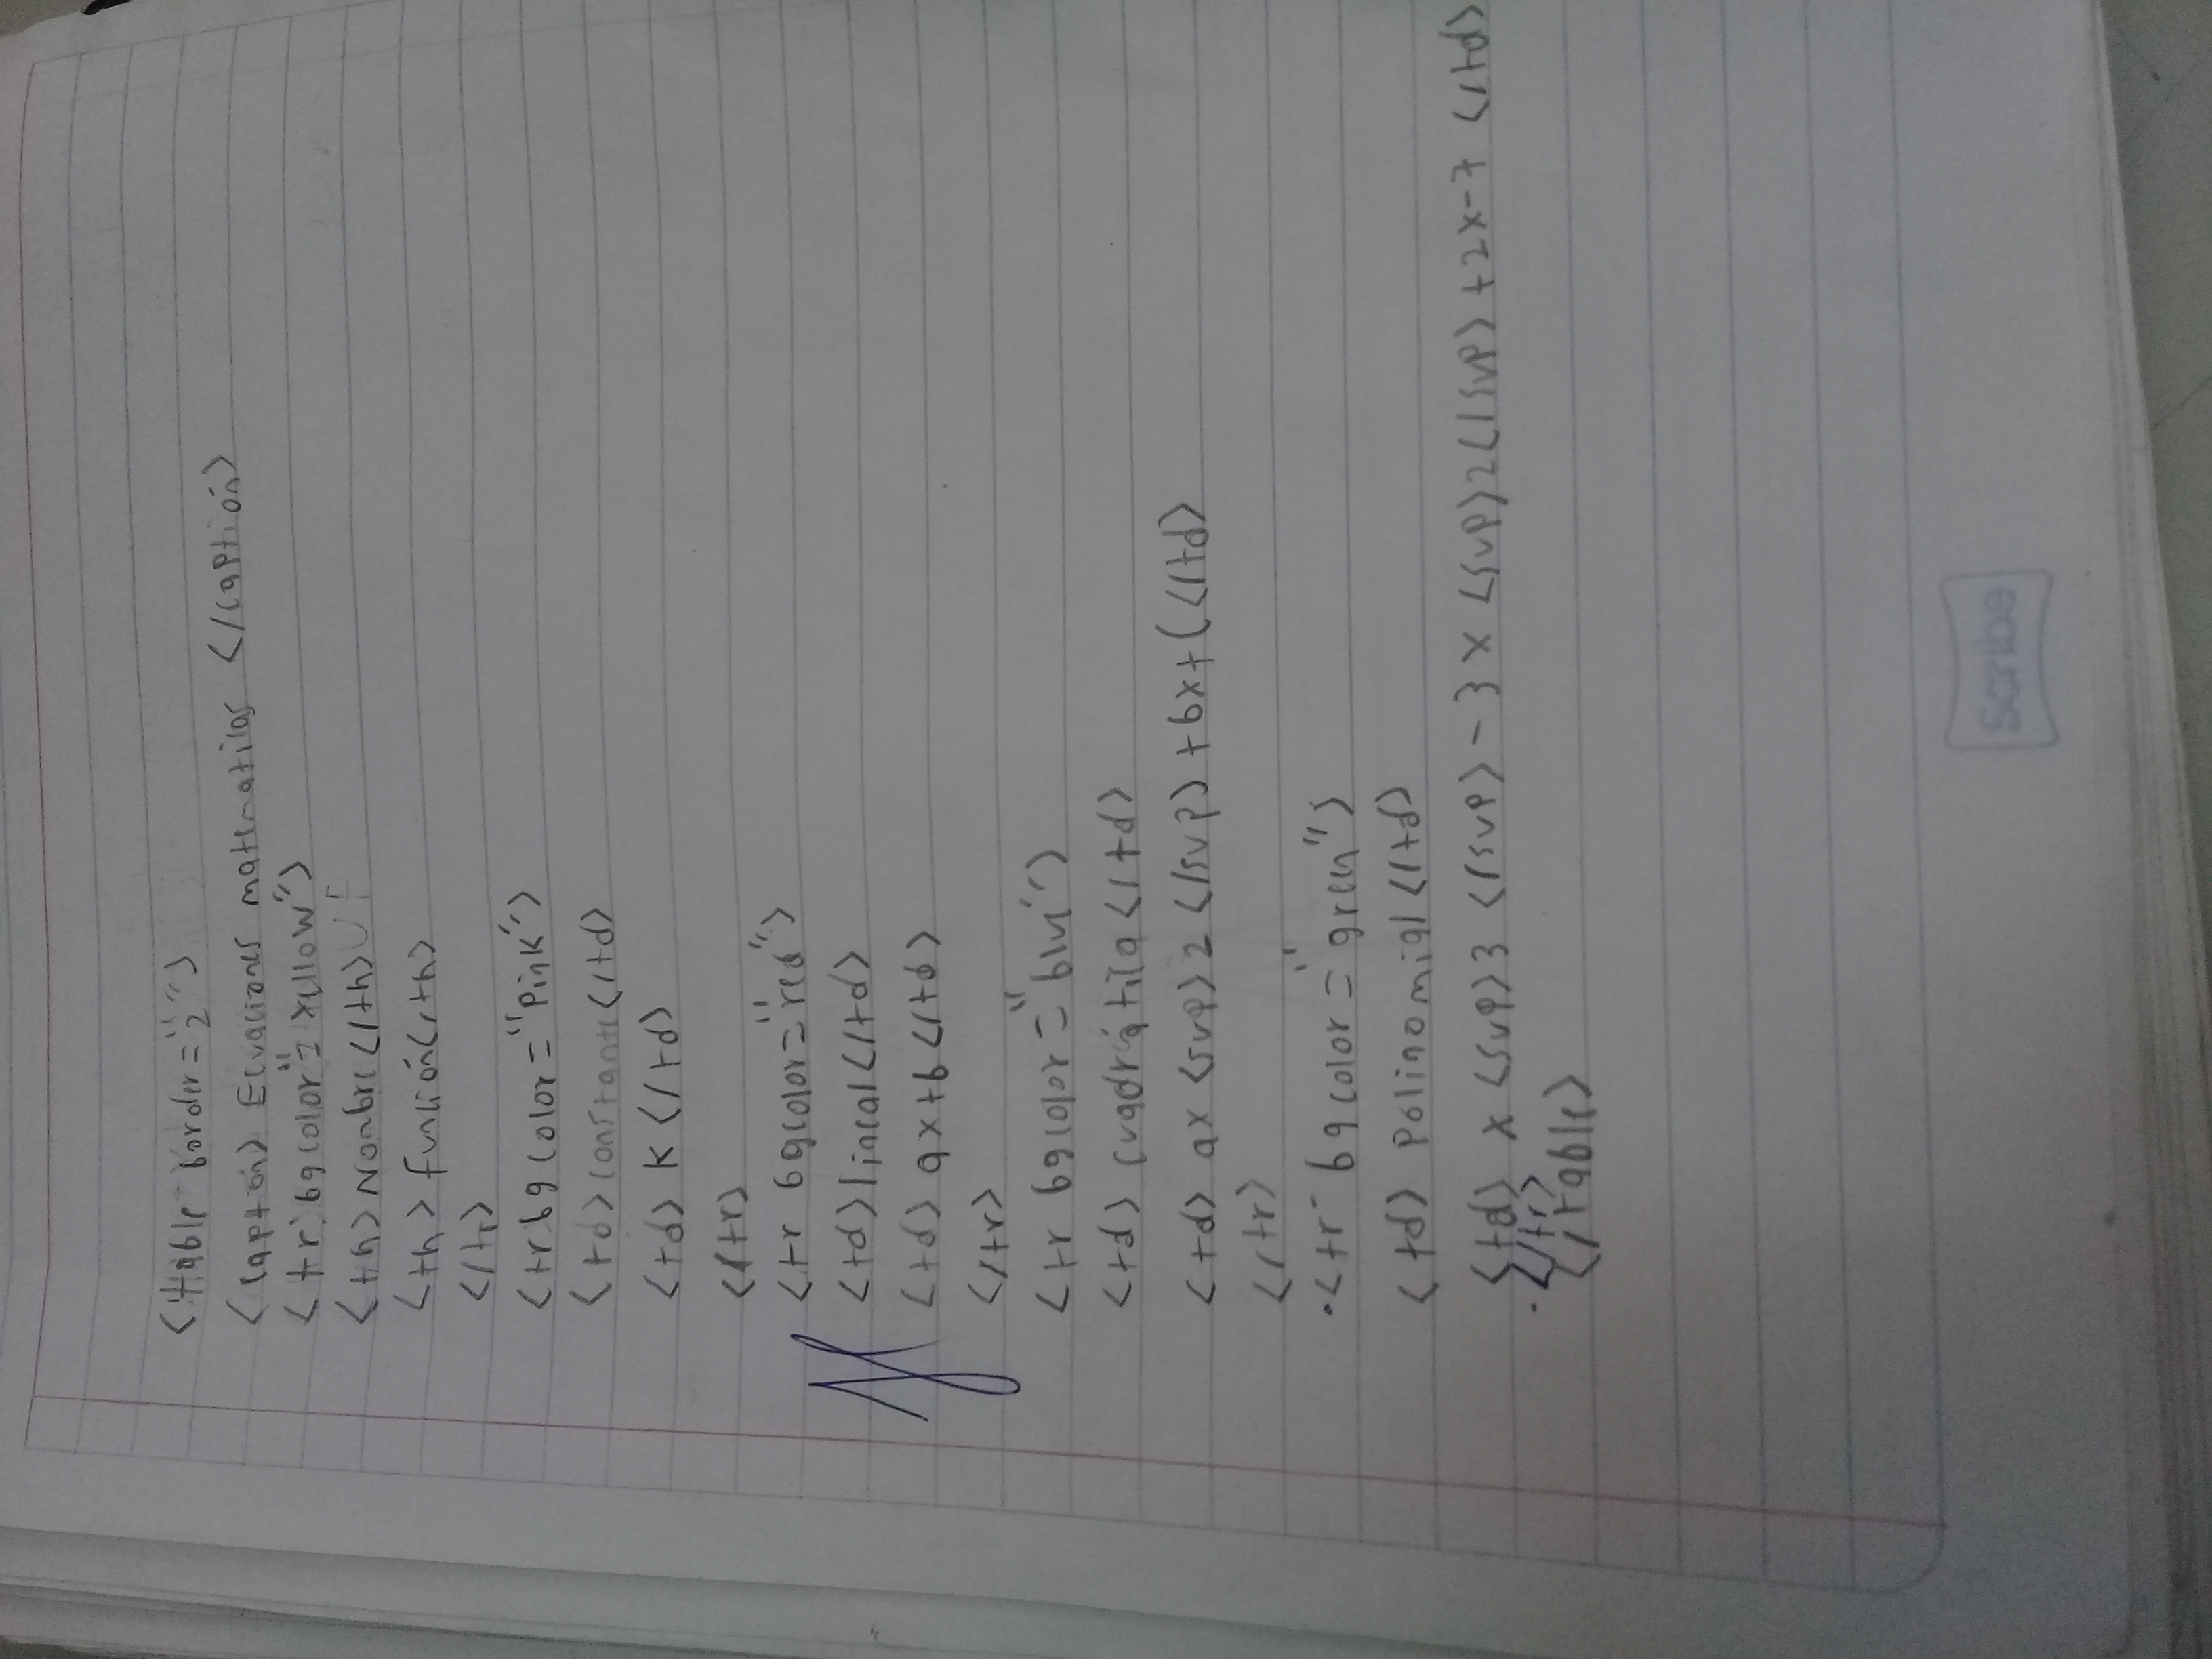 <table border="2">
<caption> Ecuaciones matematicas </caption>
<tr bgcolor"= yellow">
<th> Nombre </th>
<th> función</th>
</tr>
<tr bgcolor="Pink">
<td> constante </td>
<td> K </td>
</tr>
<tr bgcolor="red">
<td> lineal </td>
<td> ax+b </td>
</tr>
<tr bgcolor="blue">
<td> cuadrática </td>
<td> ax <sup> 2 </sup> +bx+c </td>
</tr>
<tr bgcolor="green">
<td> Polinomial </td>
<td> x <sup> 3 </sup> - 3x <sup> 2 </sup> +2x-7 </td>
</tr>
</table>
Scribe